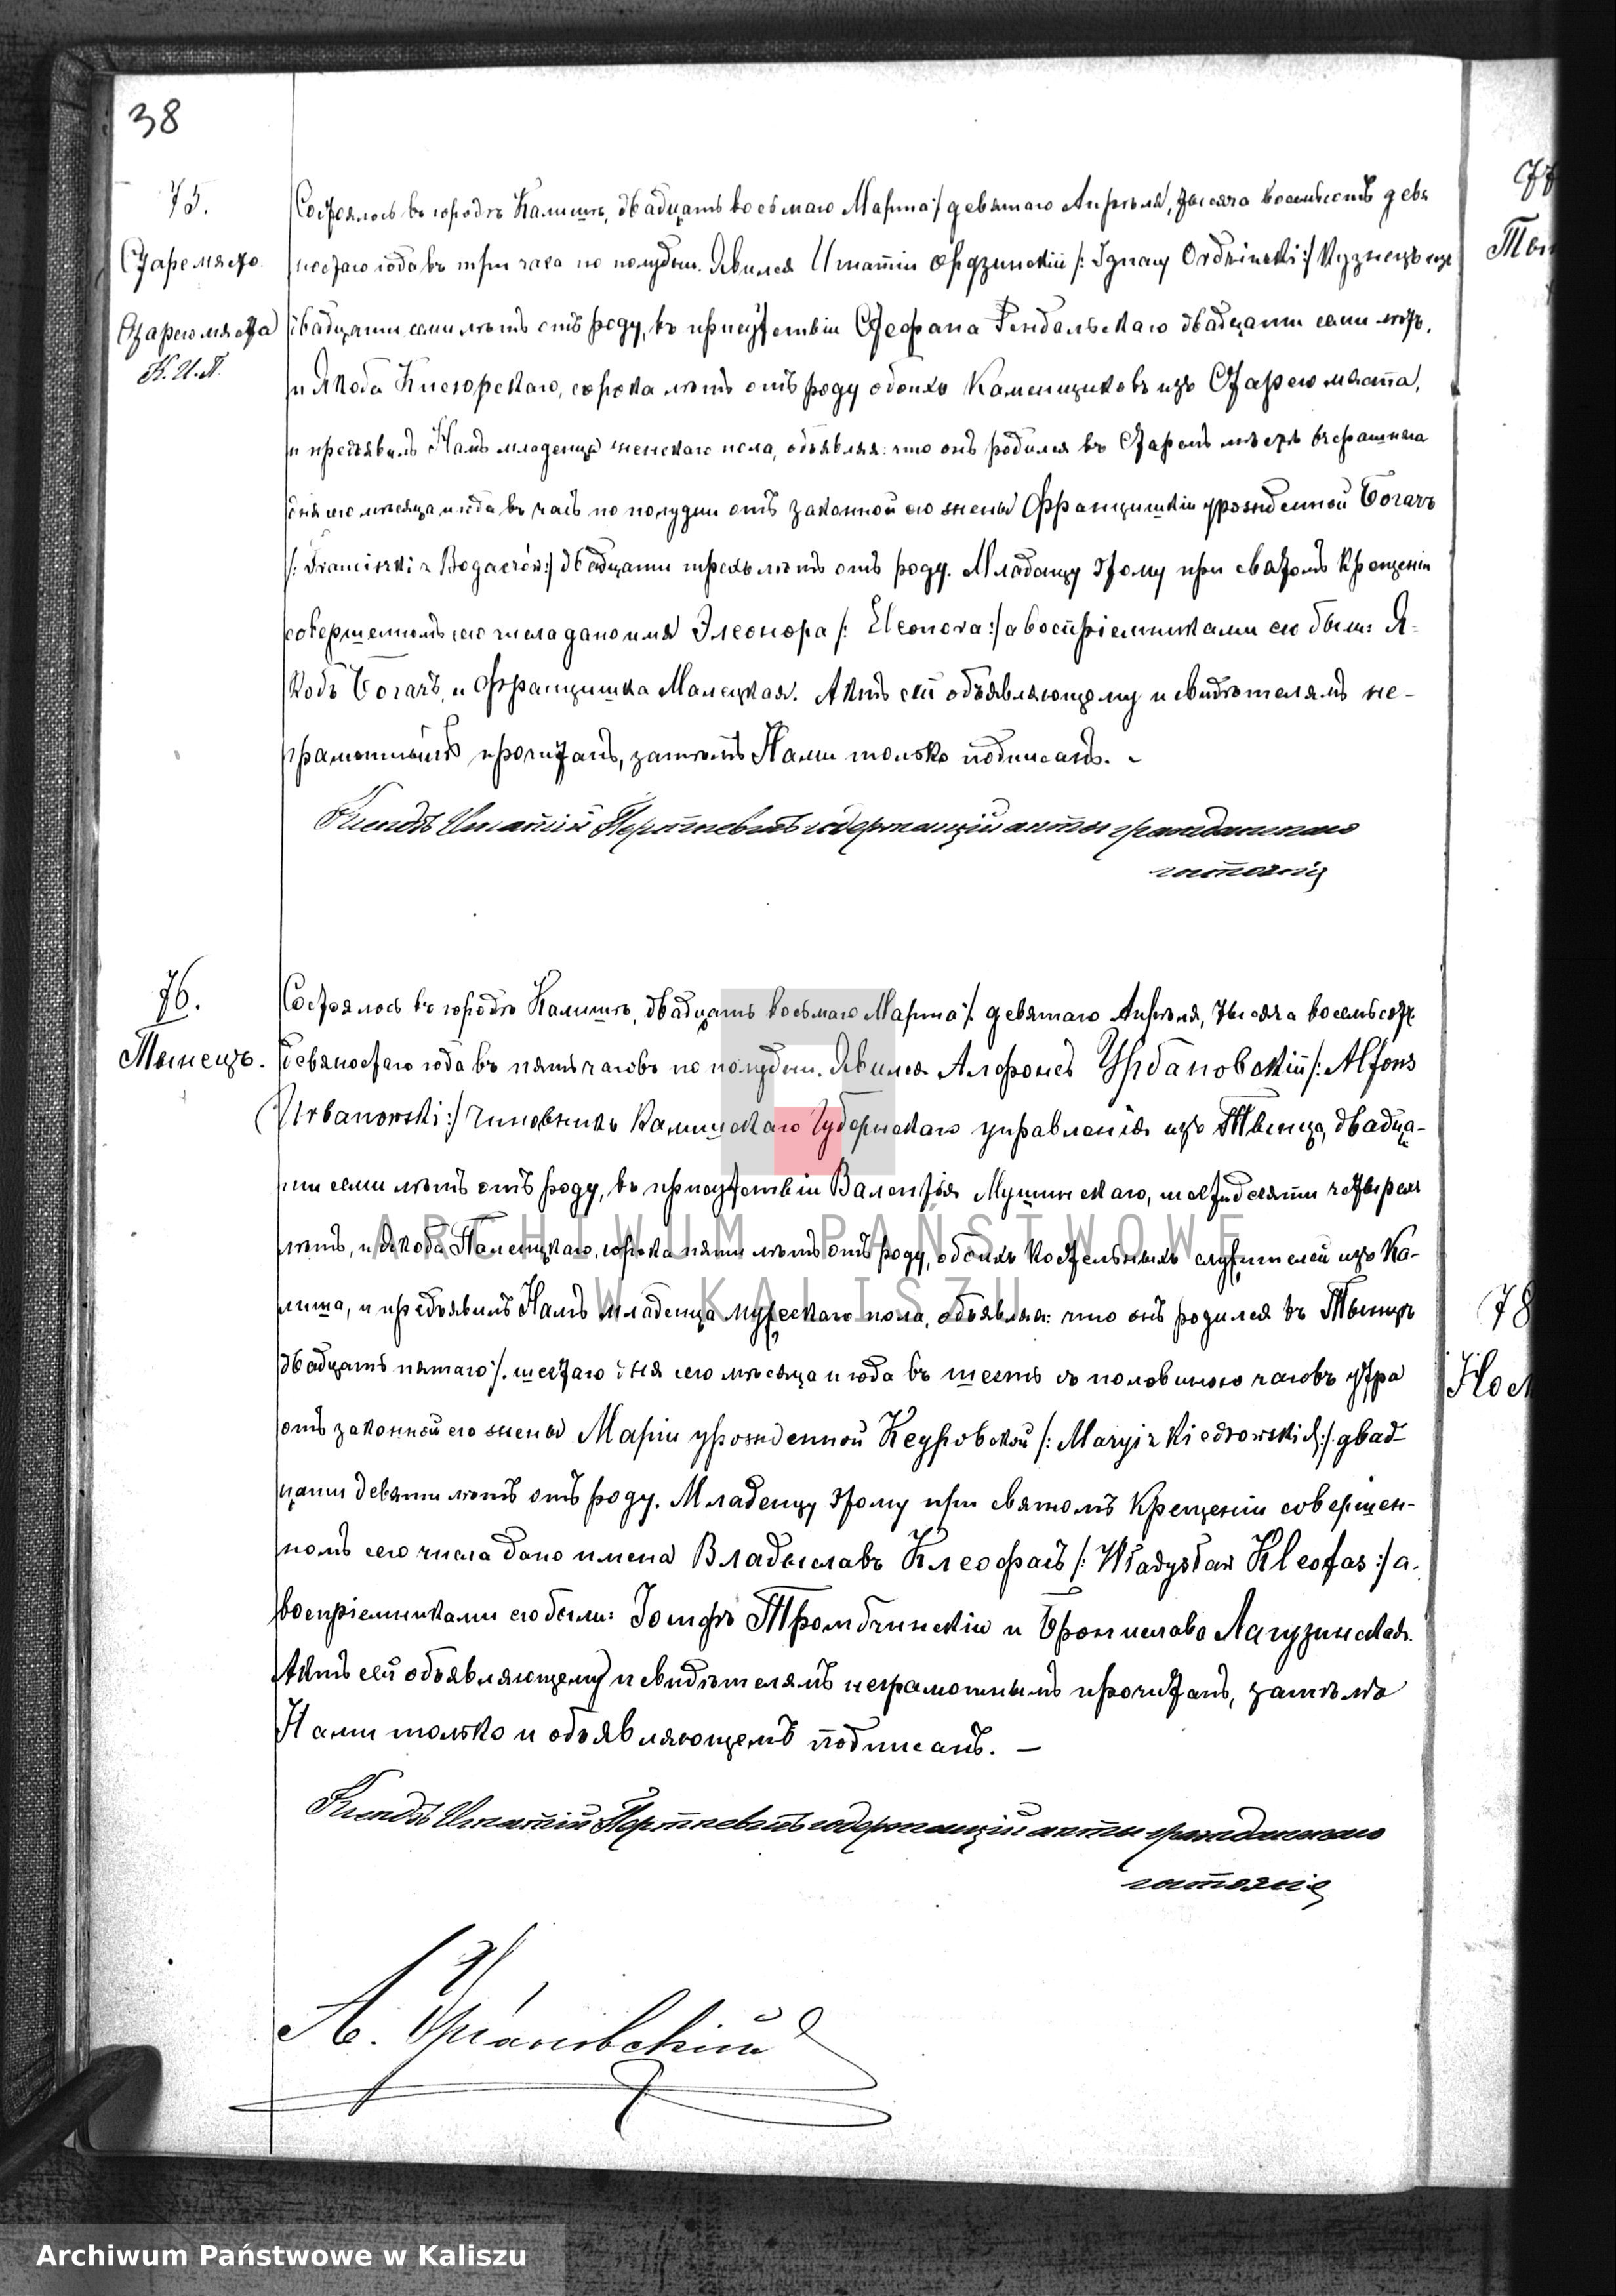 38
75.
Старемясто.
Старомяста
К. И. П.
Состоялось въ городѣ Калишѣ, двадцать восьмаго Марта /: девятаго Апрѣля, тысяча восемьсотъ девя
ностаго года въ три часа по полудни. Явился Игнатій Ордзинскій /: Ignacy Ordziński :/ Кузнецъ
двадцати семи лѣтъ отъ роду, въ присутствіи Стефана двадцати семи лѣтъ,
и Якоба сорока лѣтъ отъ роду обоихъ Каменщиковъ изъ Старего мяста,
и предъявилъ Намъ младенца женскаго пола, объявляя: что онъ родился въ Старемъ мѣстѣ вчерашняго
дня сего мѣсяца и года въ часъ по полудни отъ законной его жены Францишки урожденной Богачъ
/: Franciszki z Bogaczów :/ двадцати трехъ лѣтъ отъ роду. Младенцу этому при святомъ Крещеніи
совершенномъ сего числа дано имя Элеонора /: Eleonora :/ а воспріемниками его были: Я-
кобъ Богачъ, и Францишка Малецкая. Актъ сей объявляющему и свидѣтелямъ не-
грамотнымъ прочитанъ, затѣмъ Нами только подписанъ. -
Ксендзъ Игнатій содержащій акты гражданскаго
состоянія
76.
Тынецъ.
Состоялось въ городѣ Калишѣ, двадцать восьмаго Марта /: девятаго Апрѣля, тысяча восемьсотъ
девяностаго года въ пять часовъ по полудни. Явился Алфонсъ Урбановскій /: Alfons
Urbanowski :/ чиновникъ Калишскаго Губернскаго управленія изъ Тынца, двадца-
ти семи лѣтъ отъ роду, въ присутствіи Валентія Мушинскаго, шестидесяти четырехъ
лѣтъ, и Якоба Палецкаго, сорока пяти лѣтъ отъ роду, обоихъ костельныхъ служителей изъ Ка-
лиша, и предъявилъ Намъ младенца мужескаго пола, объявляя: что онъ родился въ Тынцѣ
двадцать пятаго /: шестаго дня сего мѣсяца и года въ шесть съ половиною часовъ утра
отъ законной его жены Маріи урожденной Кедровской /: Maryi z Kiedrowskich :/ двад-
цати девяти лѣтъ отъ роду. Младенцу этому при святомъ Крещеніи совершен-
номъ сего числа дано имена Владыславъ Клеофасъ /: Władysław Kleofas :/ а
воспріемниками его были: Іозефъ Тромбчинскій и Брониславa Лагузинская.
Актъ сей объявляющему и свидѣтелямъ неграмотнымъ прочитанъ, затѣмъ
Нами только и объявляющемъ подписанъ. —
Ксендзъ Игнатій содержащій акты гражданскаго
состоянія
А. Урбановскій
77
Тын
78
ARCHIWUM PAŃSTWOWE
W KALISZU
Archiwum Państwowe w Kaliszu